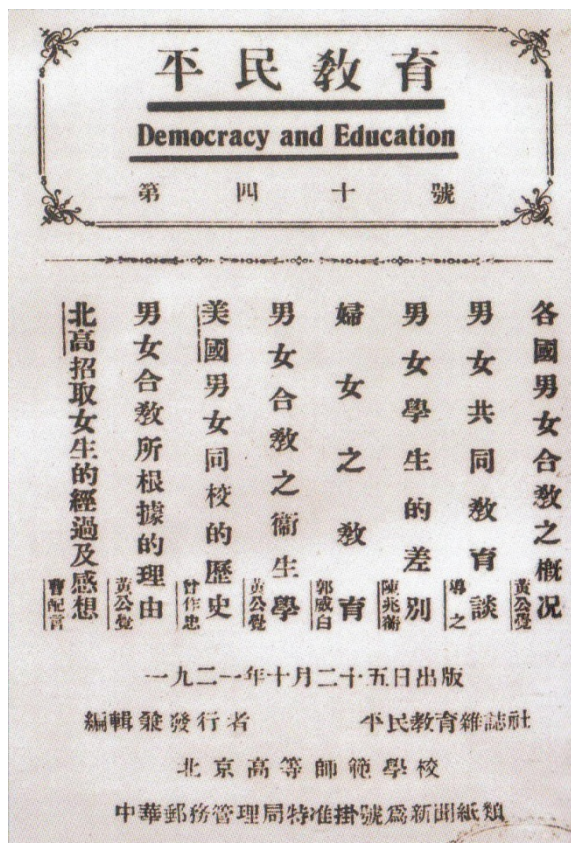 平民教育
Democracy and Education
第四十號
各國男女合教之概况 黃公覺
男女共同教育談 導之
男女學生的差別 陳兆蘅
婦女之教育 郭威白
男女合教之衞生學 黃公覺
美國男女同校的歷史 曾作忠
男女合教所根據的理由 黃公覺
北高招取女生的經過及感想 曹配言
一九二一年十月二十五日出版
編輯兼發行者 平民教育雜誌社
北京高等師範學校
中華郵務管理局特准掛號爲新聞紙類